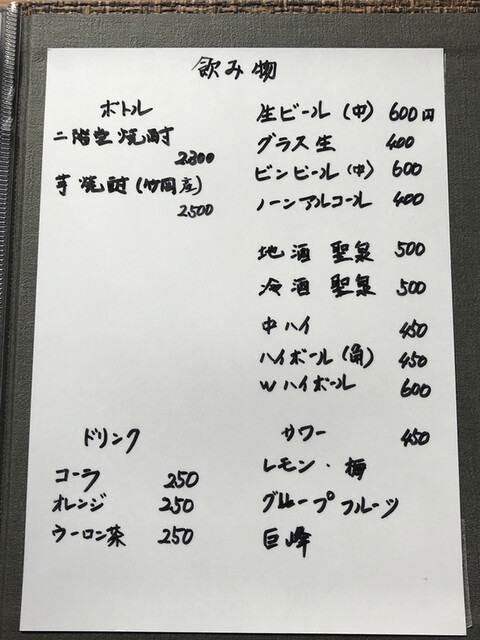 飲み物
ボトル
二階堂焼酎
2.800
芋焼酎(竹岡産)
2.500
ドリンク
コーラ 250
オレンジ 250
ウーロン茶 250
生ビール(中) 600円
グラス生 400
ビンビール(中) 600
ノーンアルコール 400
地酒 聖泉 500
冷酒 聖泉 500
中ハイ 450
ハイボール(角) 450
Wハイボール 600
サワー 450
レモン・梅
グレープフルーツ
巨峰